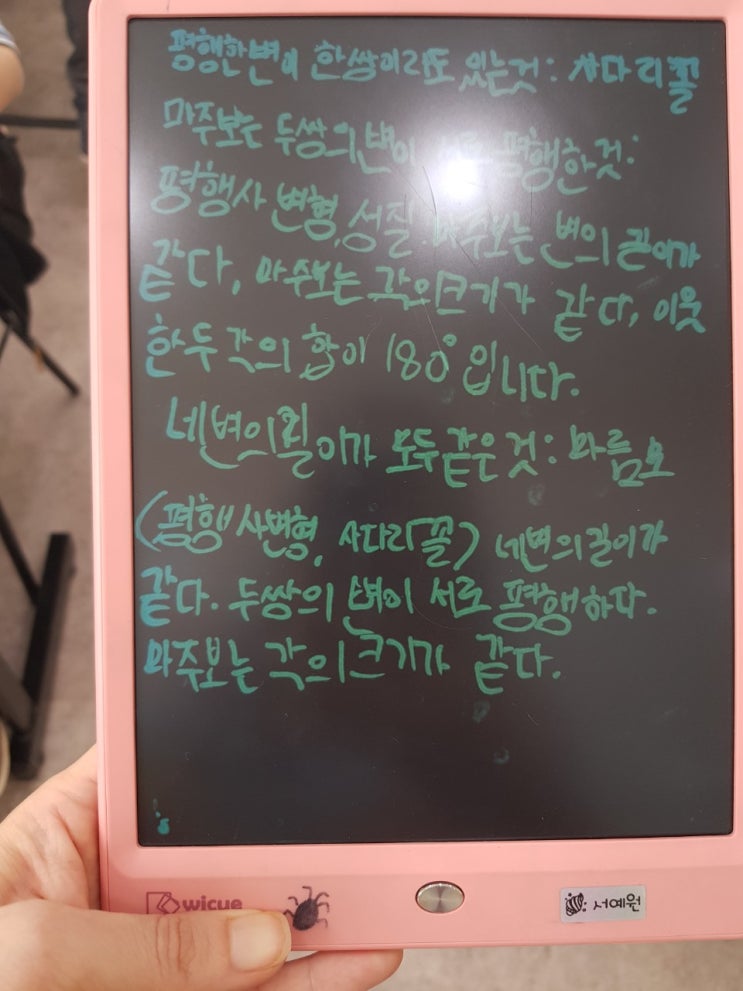 평행한변이 한쌍이라도 있는것: 사다리꼴
마주보는 두쌍의변이 서로 평행한것:
평행사변형, 성질: 마주보는 변의 길이가
같다, 마주보는 각의크기가 같다, 이웃
한두각의 합이 180°입니다.
네변의길이가 모두같은것: 마름모
(평행사변형, 사다리꼴) 네변의길이가
같다. 두쌍의 변이 서로 평행하다.
마주보는 각의크기가 같다.
wicue
서예원